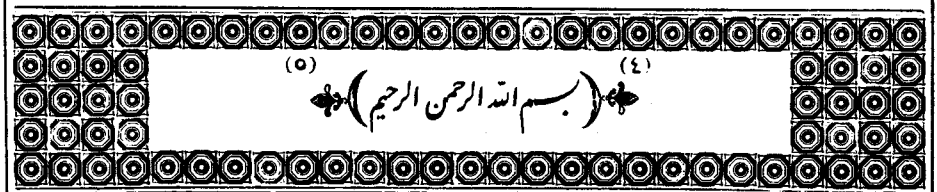 (٤) (٥)
﴿بسم الله الرحمن الرحيم﴾